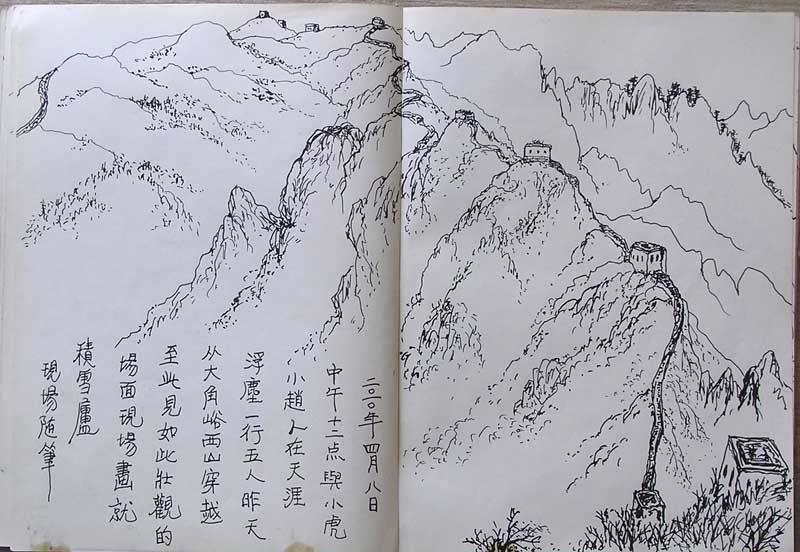 二〇一〇年四月八日
中午十二点與小虎
小趙人在天涯
浮塵一行五人昨天
从大角峪西山穿越
至此見如此壯觀的
場面現場畫就
積雪廬
現場随筆